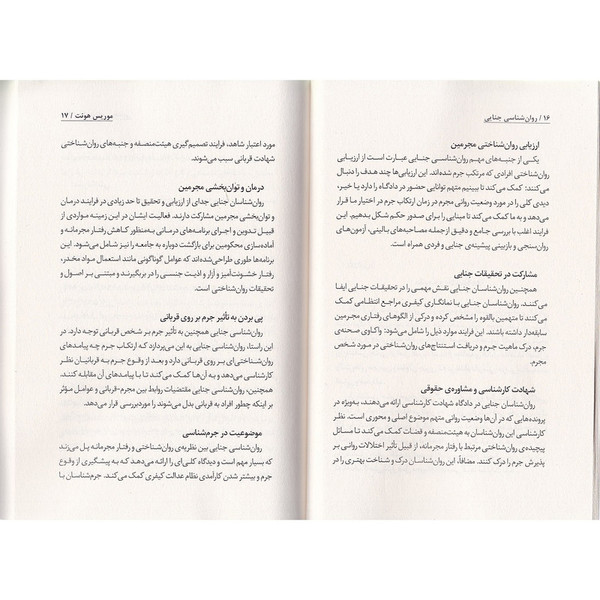 ۱۶ / روان‌شناسی جنایی
ارزیابی روان‌شناختی مجرمین
یکی از جنبه‌های مهم روان‌شناسی جنایی عبارت است از ارزیابی
روان‌شناختی افرادی که مرتکب جرم شده‌اند. این ارزیابی‌ها چند هدف را دنبال
می‌کنند: کمک می‌کند تا ببینیم متهم توانایی حضور در دادگاه را دارد یا خیر،
دیدی کلی را در مورد وضعیت روانی مجرم در زمان ارتکاب جرم در اختیار ما قرار
می‌دهد و به ما کمک می‌کند تا مبنایی را برای صدور حکم شکل بدهیم. این
فرایند اغلب با بررسی جامع و دقیق از جمله مصاحبه‌های بالینی، آزمون‌های
روان‌سنجی و بازبینی پیشینه‌ی جنایی و فردی همراه است.
مشارکت در تحقیقات جنایی
همچنین روان‌شناسان جنایی نقش مهمی را در تحقیقات جنایی ایفا
می‌کنند. روان‌شناسان جنایی با نمانگاری کیفری مراجع انتظامی کمک
می‌کنند تا متهمین بالقوه را پیدا کرده و درکی از الگوهای رفتاری مجرمین
سابقه‌دار داشته باشند. این فرایند موارد ذیل را شامل می‌شود: واکاوی صحنه‌ی
جرم، درک ماهیت جرم و دریافت استنتاج‌های روان‌شناختی در مورد شخص
مجرم.
شهادت کارشناسی و مشاوره‌ی حقوقی
روان‌شناسان جنایی در دادگاه شهادت کارشناسی ارائه می‌دهند، به‌ویژه در
پرونده‌هایی که در آن‌ها وضعیت روانی متهم موضوع اصلی و محوری است. نظر
کارشناسی این روان‌شناسان به هیئت‌منصفه و قضات کمک می‌کند تا مسائل
پیچیده‌ی روان‌شناختی مرتبط با رفتار مجرمانه، از قبیل تأثیر اختلالات روانی بر
پذیرش جرم را درک کنند. مضافاً، این روان‌شناسان درک و شناخت بهتری را در
موریس هونت / ۱۷
مورد اعتبار شاهد، فرایند تصمیم‌گیری هیئت‌منصفه و جنبه‌های روان‌شناختی
شهادت قربانی سبب می‌شوند.
درمان و توان‌بخشی مجرمین
روان‌شناسان جنایی جدای از ارزیابی و تحقیق تا حد زیادی در فرایند درمان
و توان‌بخشی مجرمین مشارکت دارند. فعالیت ایشان در این زمینه مواردی از
قبیل تدوین و اجرای برنامه‌های درمانی به‌منظور کاهش رفتار مجرمانه و
آماده‌سازی محکومین برای بازگشت دوباره به جامعه را نیز شامل می‌شود. این
برنامه‌ها طوری طراحی‌شده‌اند که عوامل گوناگونی مانند استعمال مواد مخدر،
رفتار خشونت‌آمیز و آزار و اذیت جنسی را در بربگیرند و مبتنی بر اصول و
تحقیقات روان‌شناختی است.
پی بردن به تأثیر جرم بر روی قربانی
روان‌شناسی جنایی همچنین به تأثیر جرم بر شخص قربانی توجه دارد. در
این راستا، روان‌شناسی جنایی به این می‌پردازد که ارتکاب جرم چه پیامدهای
روان‌شناختی‌ای بر روی قربانی دارد و بعد از وقوع جرم به قربانیان نظر
کارشناسی می‌دهد و به آن‌ها کمک می‌کند تا با پیامدهای آن مقابله کنند.
همچنین، روان‌شناسی جنایی مقتضیات روابط بین مجرم-قربانی و عوامل مؤثر
بر اینکه چطور افراد به قربانی بدل می‌شوند را موردبررسی قرار می‌دهد.
موضوعیت در جرم‌شناسی
روان‌شناسی جنایی بین نظریه‌ی روان‌شناختی و رفتار مجرمانه پل می‌زند،
که بسیار مهم است و دیدگاه کلی‌ای را ارائه می‌دهد که به پیشگیری از وقوع
جرم و بیشتر شدن کارآمدی نظام عدالت کیفری کمک می‌کند. جرم‌شناسان با